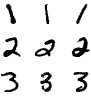 1 1 1
2 2 2
3 3 3